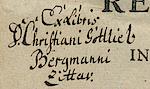 Ex Libris
D. Christiani Gottlieb
Bergmanni
Zittav.
RE
IN